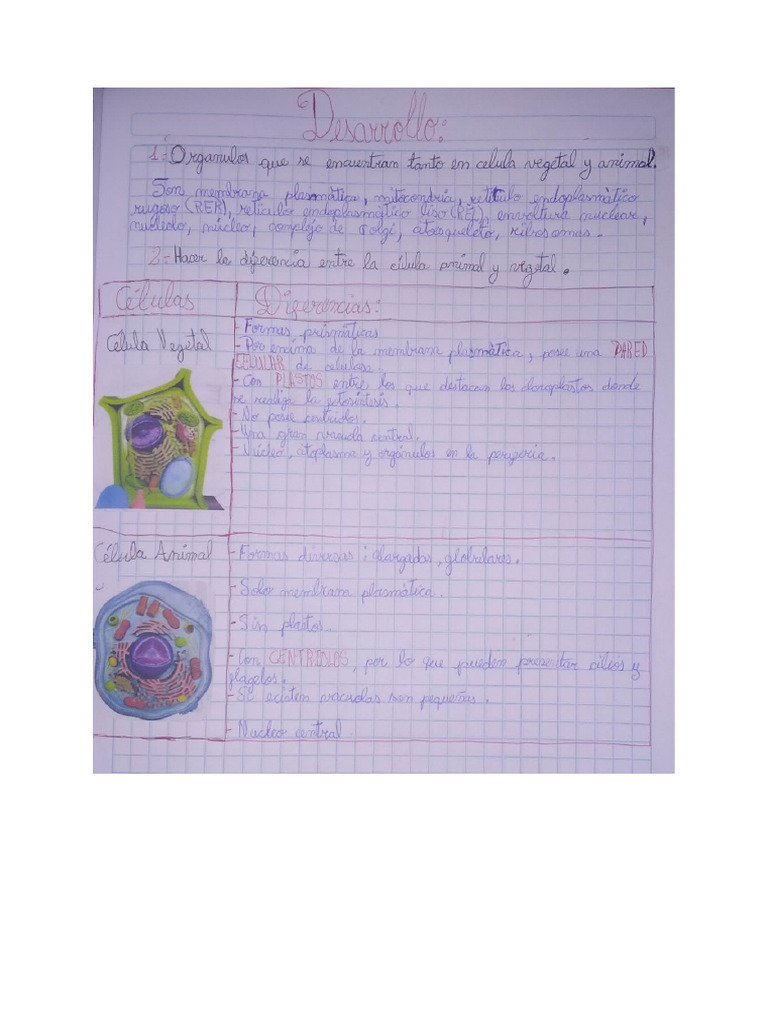 Desarrollo:
1- Organulos que se encuentran tanto en celula vegetal y animal.
Son membrana plasmática, mitocondria, retículo endoplasmático
rugoso (RER), retículo endoplasmático liso (REL), envoltura nuclear,
nucleolo, núcleo, complejo de Golgi, citoesqueleto, ribosomas.
2- Hacer la diferencia entre la célula animal y vegetal.
Células
Diferencias:
Célula Vegetal
- Formas prismáticas
- Por encima de la membrana plasmática, posee una PARED
CELULAR de celulosa.
- Con PLASTOS entre los que destacan los cloroplastos donde
se realiza la fotosíntesis.
- No posee centriolos.
- Una gran vacuola central.
- Núcleo, citoplasma y orgánulos en la periferia.
Célula Animal
- Formas diversas: alargadas, globulares.
- Solo membrana plasmática.
- Sin plastos.
- Con CENTRIOLOS, por lo que pueden presentar cilios y
flagelos.
- Si existen vacuolas son pequeñas.
- Nucleo central